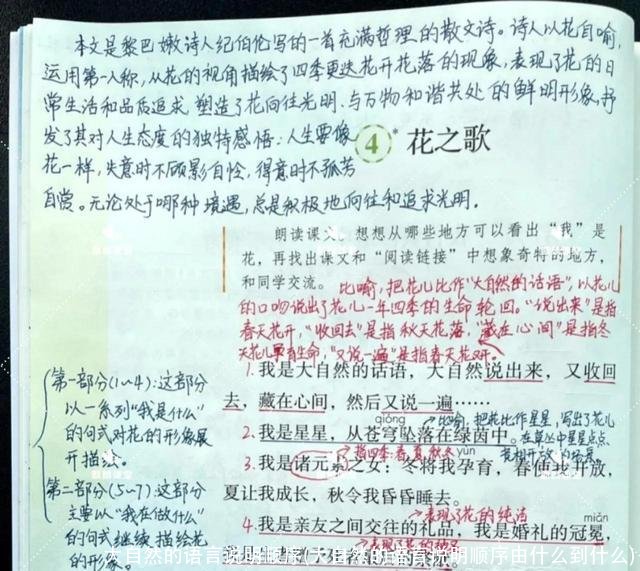 本文是黎巴嫩诗人纪伯伦写的一首充满哲理的散文诗。诗人以花自喻,
运用第一人称,从花的视角描绘了四季更迭花开花落的现象,表现了花的日
常生活和品质追求,塑造了花向往光明、与万物和谐共处的鲜明形象,抒
发了其对人生态度的独特感悟:人生要像
花一样,失意时不顾影自怜,得意时不孤芳
自赏。无论处于哪种境遇,总是积极地向往和追求光明。
4* 花之歌
朗读课文。想想从哪些地方可以看出“我”是
花,再找出课文和“阅读链接”中想象奇特的地方,
和同学交流。
比喻,把花儿比作“大自然的话语”,以花儿
的口吻说出了花儿一年四季的生命轮回。“说出来”是指
春天花开,“收回去”是指秋天花落,“藏在心间”是指冬
天花儿孕育生命,“又说一遍”是指春天花又开。
1.我是大自然的话语,大自然说出来,又收回
去,藏在心间,然后又说一遍……
qióng
比喻,把花比作星星,写出了花儿
2.我是星星,从苍穹坠落在绿茵中。
在草丛中星星点点、
yīn
指四季春夏秋冬
3.我是诸元素之女:冬将我孕育,春使我开放,
夏让我成长,秋令我昏昏睡去。
表现了花的纯洁
miǎn
4.我是亲友之间交往的礼品,我是婚礼的冠冕,
第一部分(1~4):这部分
以一系列“我是什么”
的句式对花的形象展
开描绘。
第二部分(5~7)这部分
主要以“我在做什么”
的句式继续描绘花
的形象。
大自然的语言说明顺序(大自然的语言说明顺序由什么到什么)